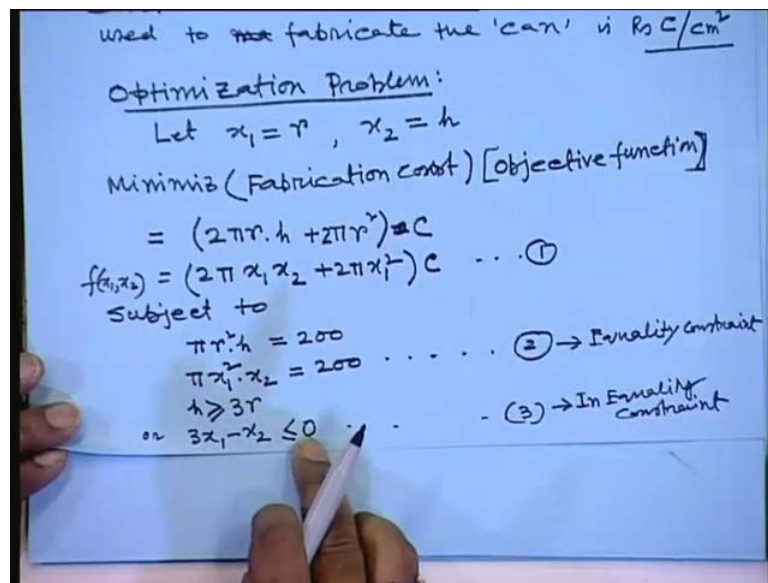 used to fabricate the 'can' is Rs C/cm²
Optimization Problem:
Let x₁ = r , x₂ = h
Minimiz (Fabrication cost) [objective function]
= (2πr.h + 2πr²) C
f(x₁,x₂) = (2π x₁ x₂ + 2π x₁²) C ... ①
Subject to
πr².h = 200
πx₁².x₂ = 200 ..... ② → Equality constraint
h ≥ 3r
or 3x₁ - x₂ ≤ 0 . . . (3) → In Equality constraint